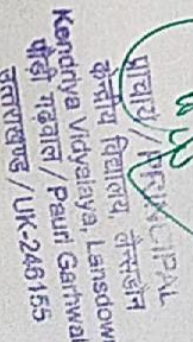 प्राचार्य / PRINCIPAL
केन्द्रीय विद्यालय, लैंसडौन
Kendriya Vidyalaya, Lansdown
पौड़ी गढ़वाल / Pauri Garhwal
उत्तराखण्ड / UK-246155